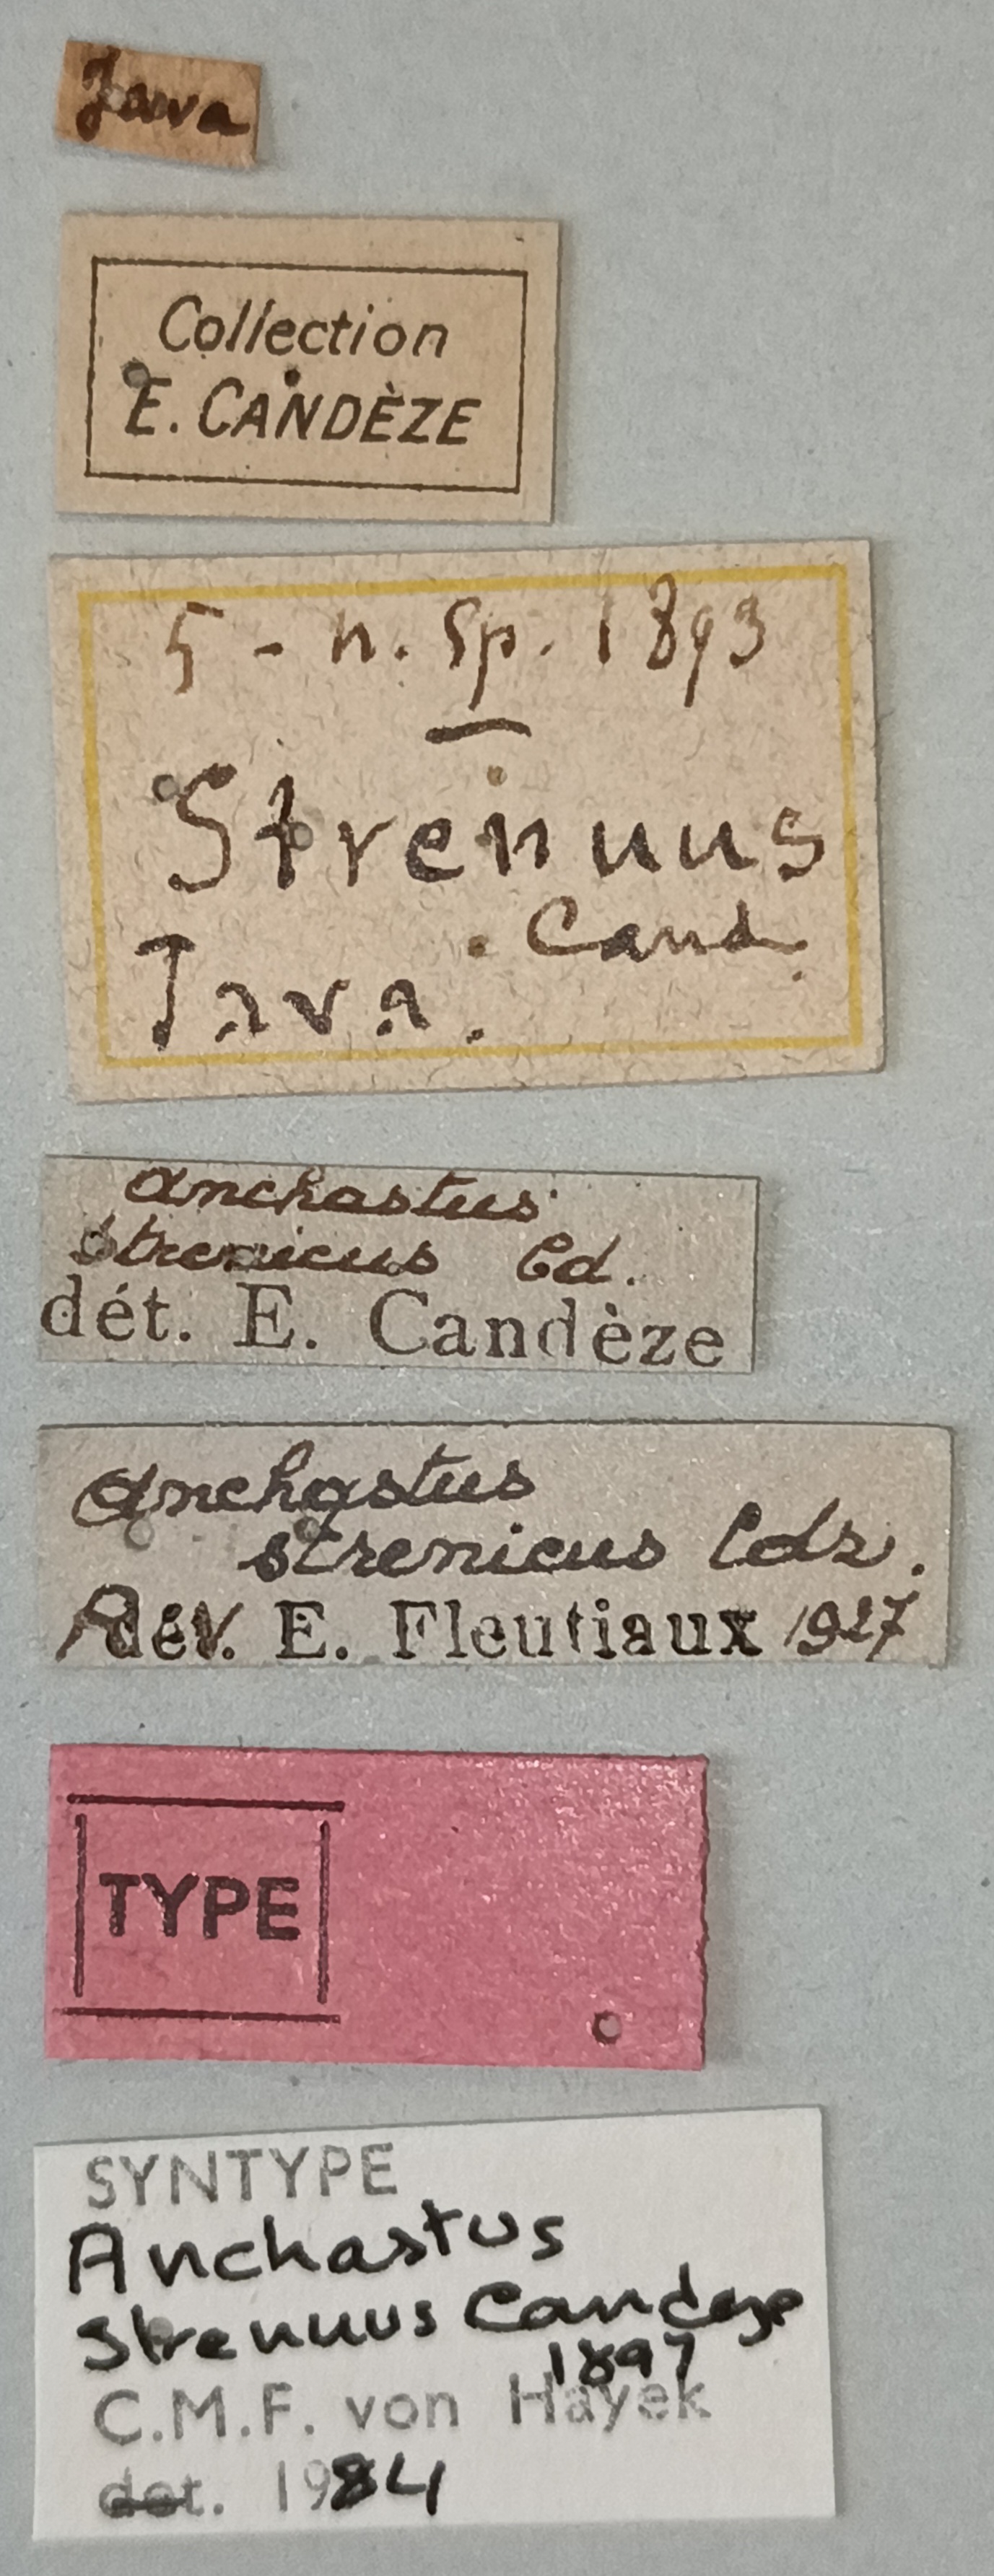 Java
Collection
E. CANDÈZE
5 - n. Sp. 1893
Strenuus
Cand.
Java.
Anchastus
strenicus Cd.
dét. E. Candèze
Anchastus
strenicus Cdz.
Rév. E. Fleutiaux 1927
TYPE
SYNTYPE
Anchastus
Strenuus Candeze
1897
C.M.F. von Hayek
det. 1984